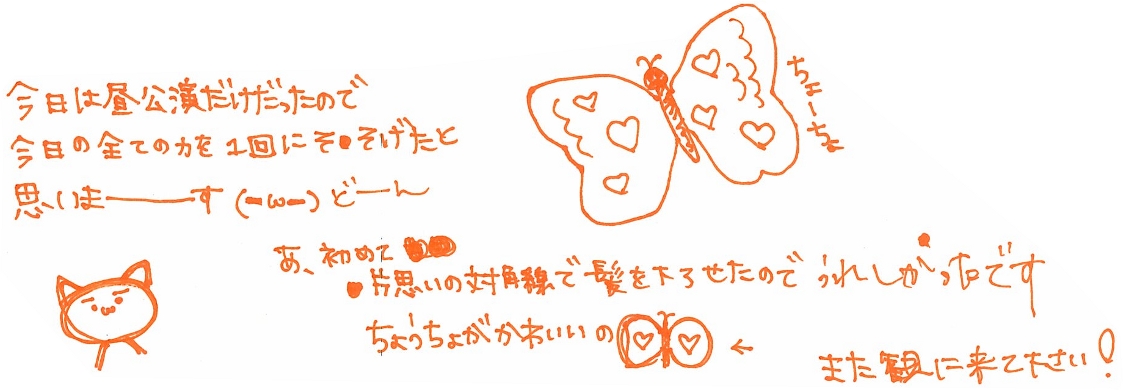 今日は昼公演だけだったので
今日の全ての力を1回にそそげたと
思いまーーーす(-ω-)どーん
ちょーちょ
あ、初めて
片思いの対角線で髪を下ろせたのでうれしかったです
ちょうちょがかわいいの←
また観に来て下さい!